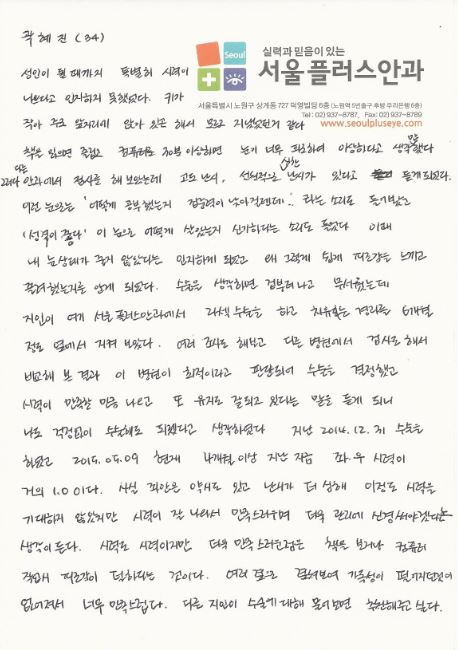 곽혜진 (34)
Seoul
실력과 믿음이 있는
서울플러스안과
서울특별시 노원구 상계동 727 덕영빌딩 6층 (노원역 5번출구 후방 우리은행 6층)
Tel : 02) 937-8787, Fax : 02) 937-8789
www.seoulpluseye.com
성인이 될 때까지 특별히 시력이
나쁘다고 인지하지 못했었다. 키가
작아 주로 앞자리에 앉아 있곤 해서 모르고 지냈었던거 같다
책을 읽으면 졸립고 컴퓨터도 30분 이상하면 눈이 너무 피로하여 이상하다고 생각했다
그러다 안과에서 검사를 해 보았는데 고도 난시, 선천적으로 난시가 있다고 듣게 되었다.
이런 눈으로는 '어떻게 공부했는지 집중력이 낮아질텐데..' 라는 소리도 듣기했고
'성격이 좋다' 이 눈으로 어떻게 살았는지 신기하다는 소리도 들었다 이때
내 눈상태가 좋지 않았다는 인지하게 되었고 왜 그렇게 쉽게 피로감을 느끼고
졸려했는지를 알게 되었다. 수술은 생각하면 겁부터 나고 무서웠는데
지인이 여기 서울플러스안과에서 라섹수술을 하고 치유되는 경과를 6개월
정도 옆에서 지켜 보았다. 여러 조사도 해보고 다른 병원에서 검사도 해서
비교해 본 결과 이 병원이 최적이라고 판단되어 수술을 결정했고
시력이 만족할 만큼 나오고 또 유지도 잘되고 있다는 말을 듣게 되니
나도 걱정없이 수술해도 되겠다고 생각하였다 지난 2014.12.31 수술을
하였고 2015.05.09 현재 4개월 이상 지난 지금 좌.우 시력이
거의 1.0 이다. 사실 좌안은 약시도 있고 난시가 더 심해 이정도 시력을
기대하지 않았지만 시력이 잘 나와서 만족스러우며 더욱 관리에 신경써야겠다는
생각이 든다. 시력도 시력이지만 더욱 만족스러운점은 책을 보거나 컴퓨터
작업에 피로감이 덜하다는 것이다. 여러 겹으로 겹쳐보여 가독성이 떨어지던것이
없어져서 너무 만족스럽다. 다른 지인이 수술에 대해 물어보면 추천해주고 싶다.